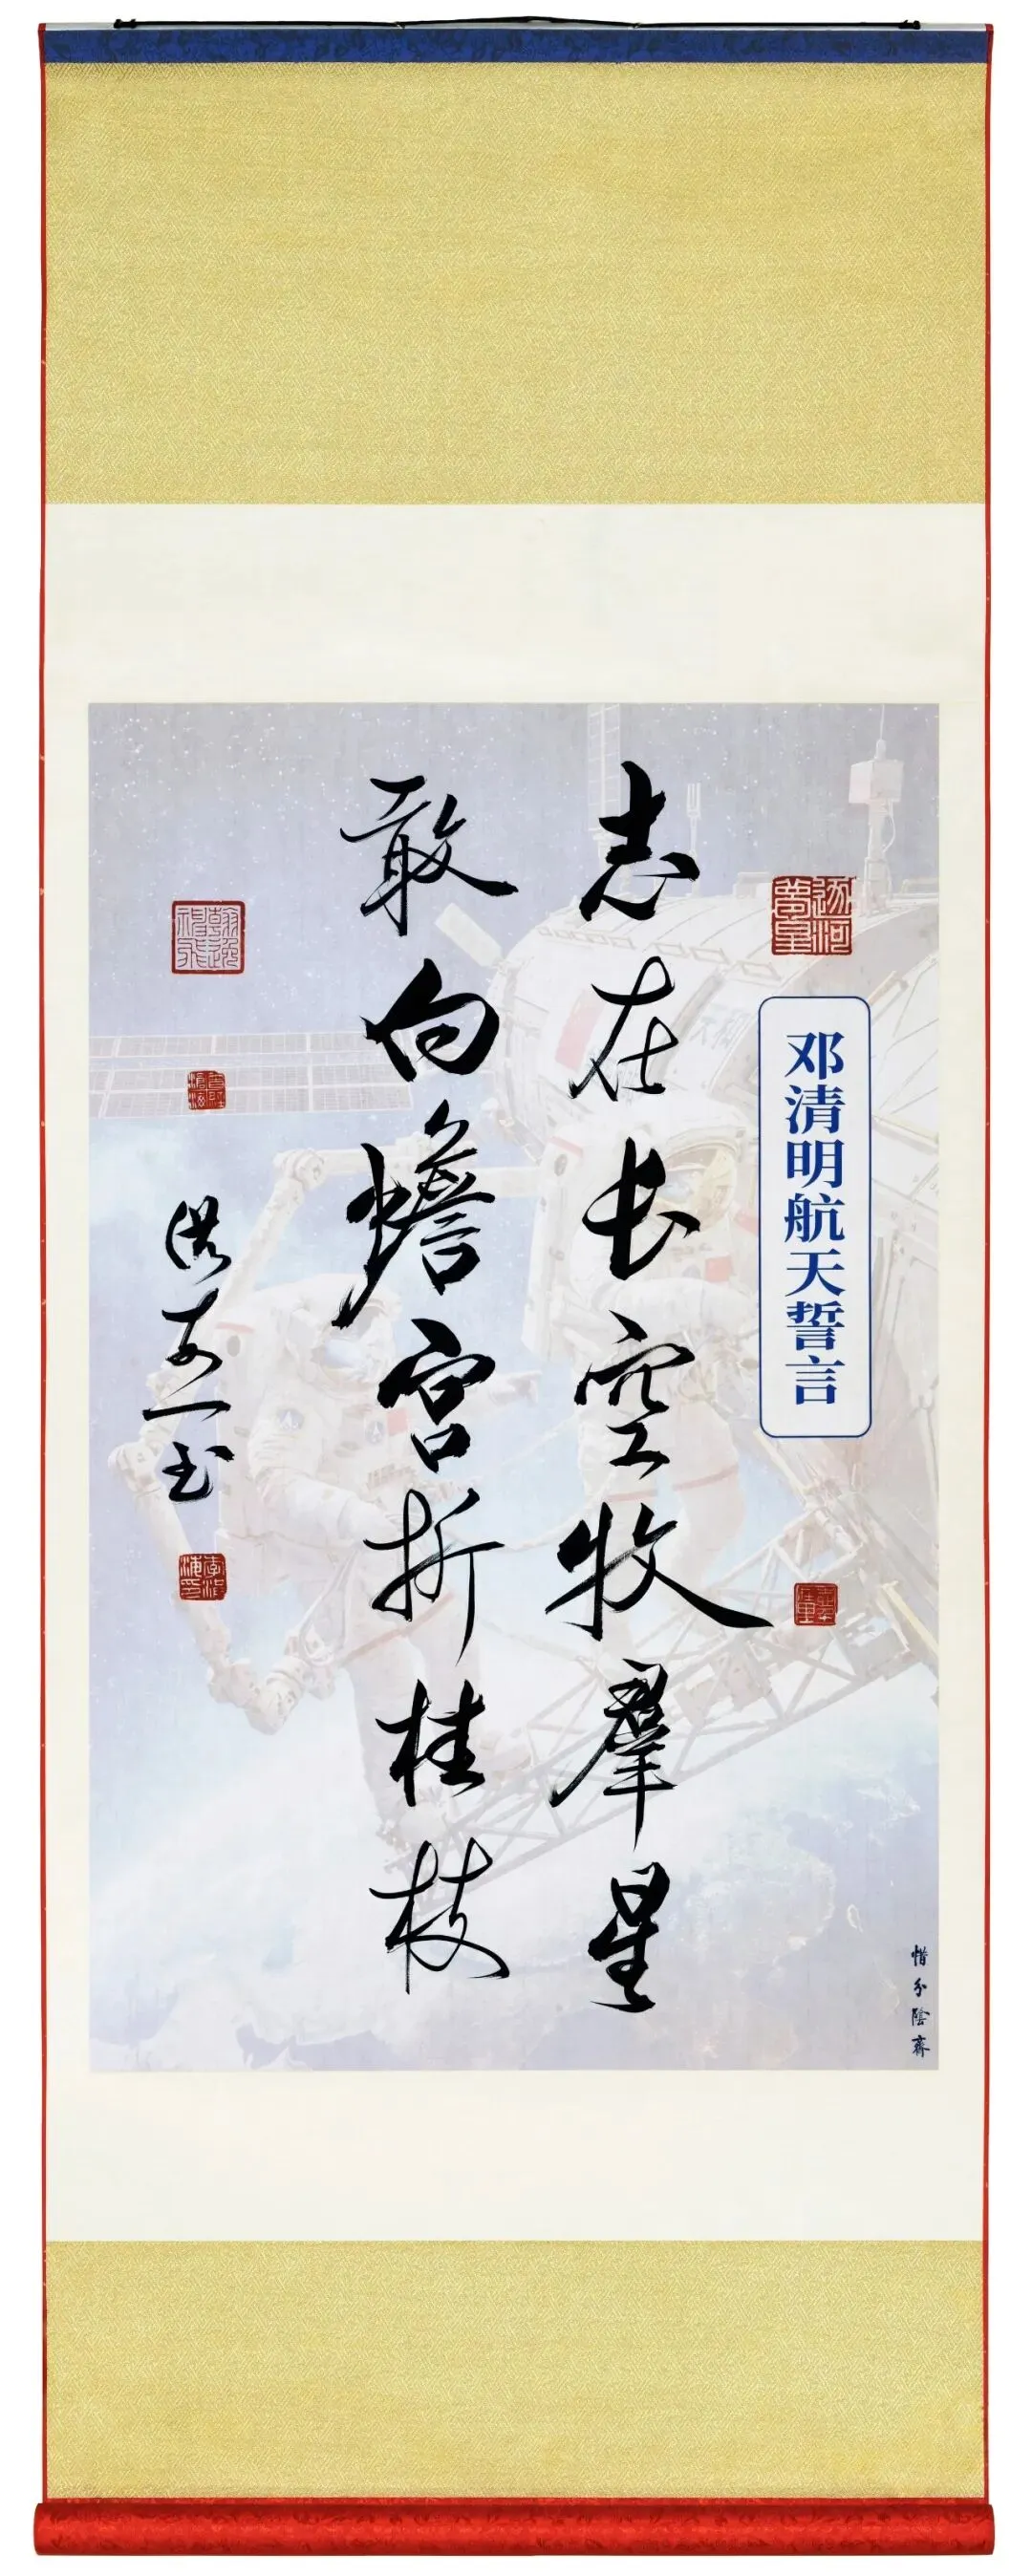 邓清明航天誓言
志在长空牧羣星
敢向蟾宫折桂枝
惜分陰齋